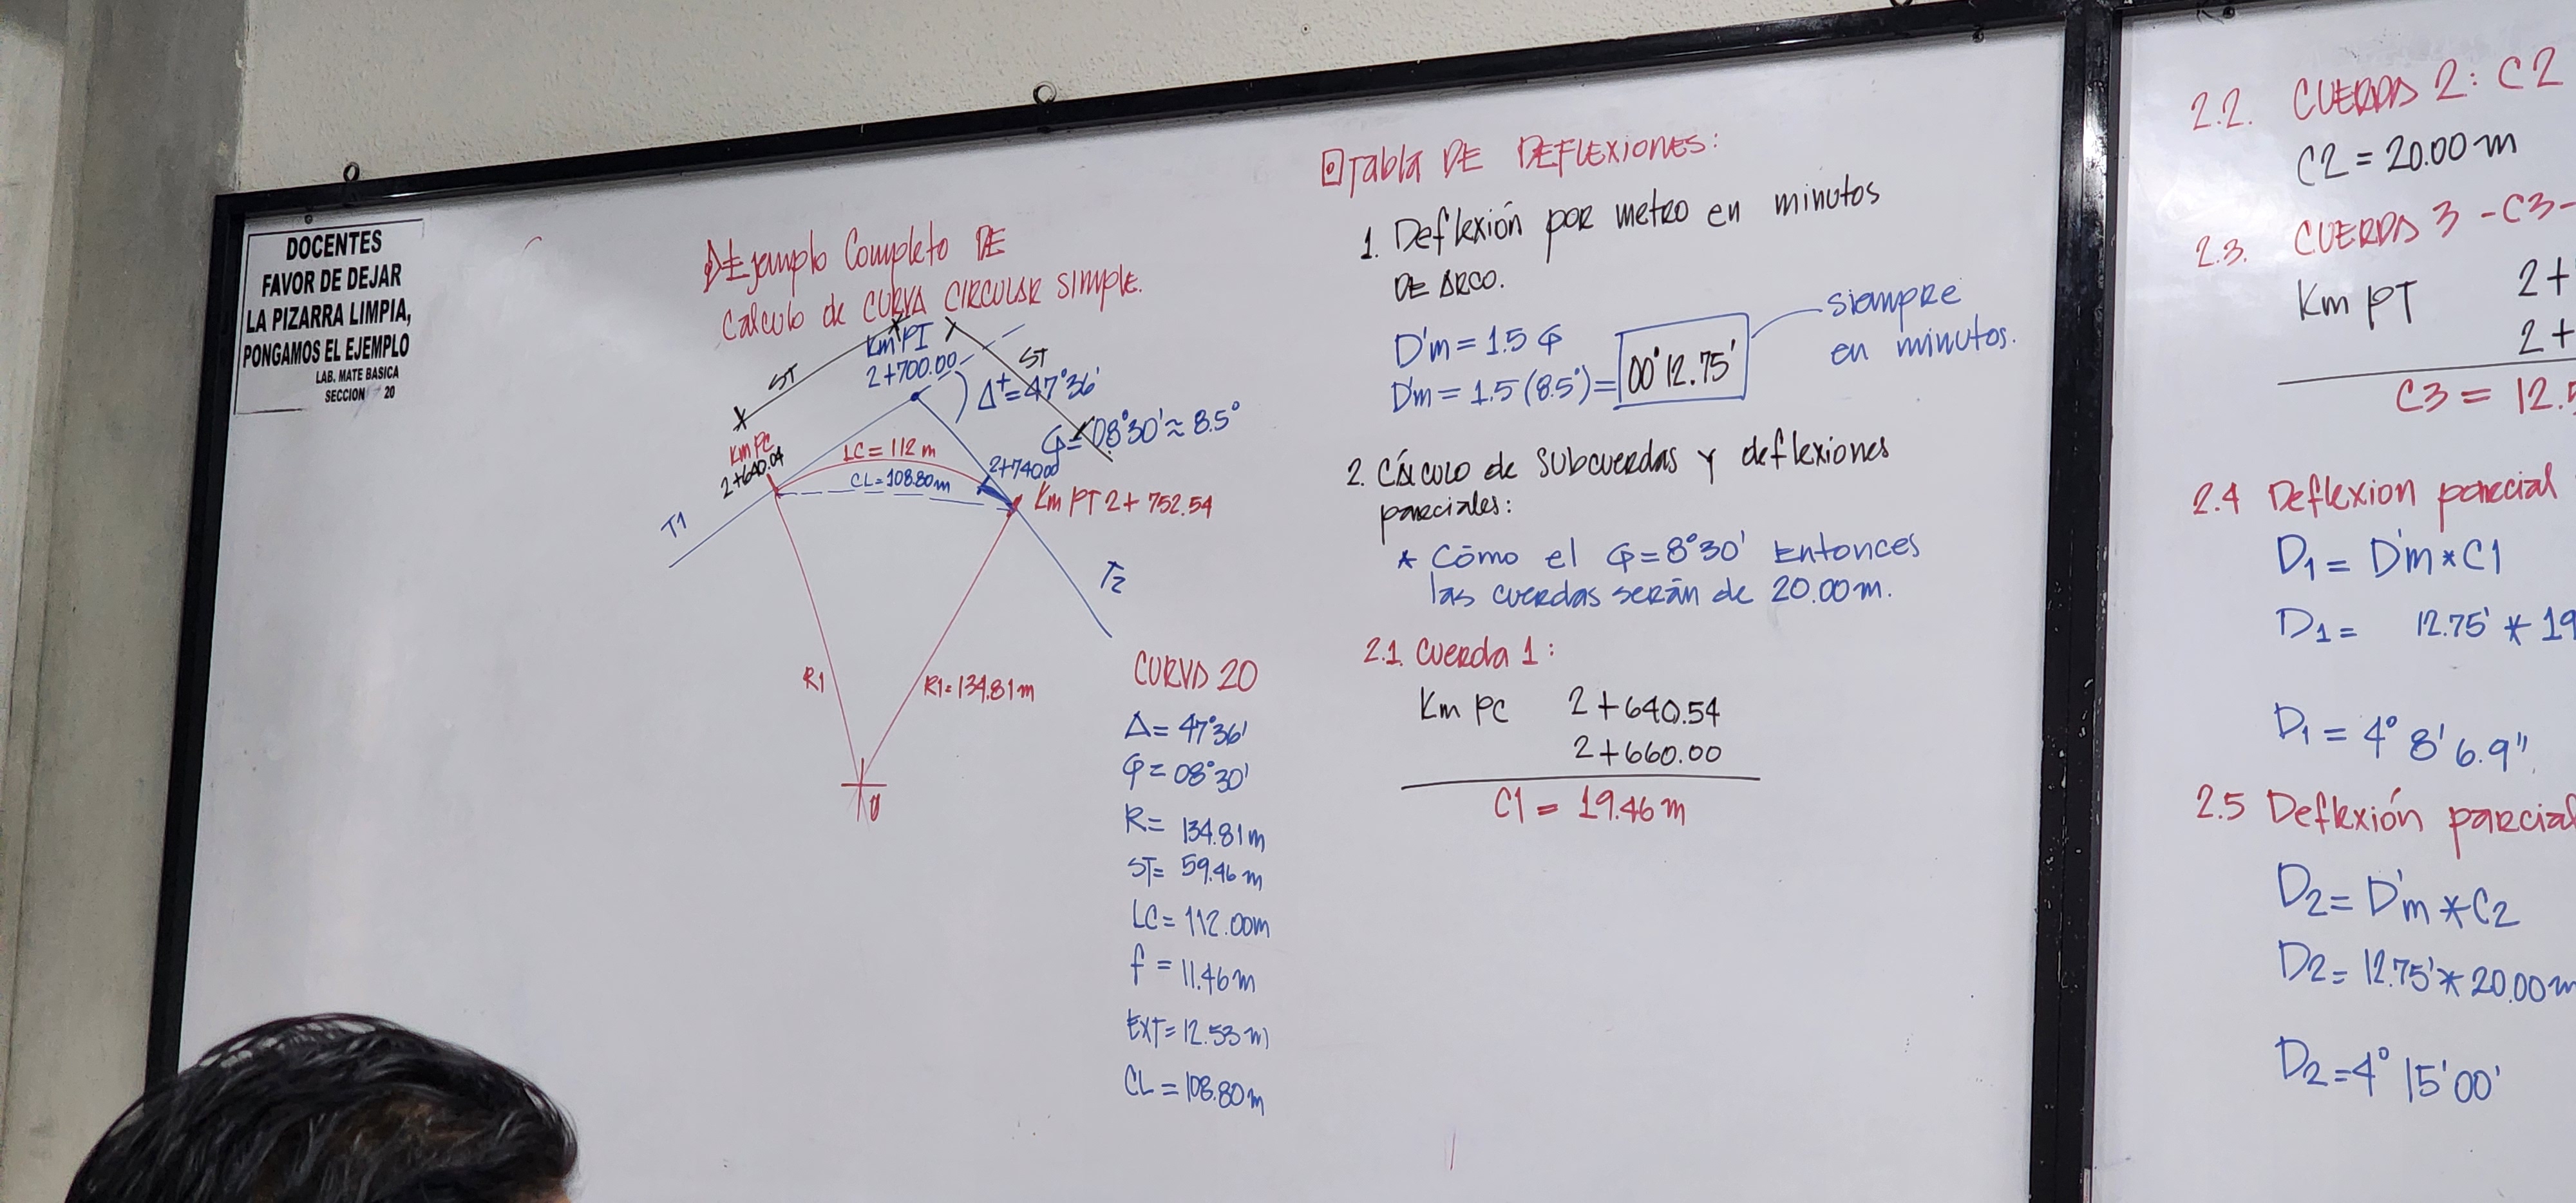 DOCENTES
FAVOR DE DEJAR
LA PIZARRA LIMPIA,
PONGAMOS EL EJEMPLO
LAB. MATE BASICA
SECCION 20
Ejemplo Completo DE
Calculo de CURVA CIRCULAR SIMPLE.
Km PI
2+700.00
ST
ST
Δ+=47°36'
G=08°30'≈8.5°
Km PC
2+640.04
LC=112 m
CL=108.80m
2+740.00
Km PT 2+752.54
T1
T2
R1
R1=134.81m
CURVA 20
Δ=47°36'
G=08°30'
R=134.81m
ST=59.46m
LC=112.00m
f=11.46m
Ext=12.53m
CL=108.80m
Tabla DE DEFLEXIONES:
1. Deflexión por metro en minutos
DE ARCO.
D'm=1.5 G
D'm=1.5(8.5°)= 00°12.75'
siempre
en minutos.
2. Cálculo de subcuerdas y deflexiones
parciales:
* Cómo el G=8°30' Entonces
las cuerdas serán de 20.00m.
2.1. Cuerda 1:
Km PC 2+640.54
2+660.00
C1=19.46m
2.2. CUERDA 2: C2
C2=20.00m
2.3. CUERDA 3 -C3-
Km PT 2+
2+
C3=12.5
2.4 Deflexion parcial
D1=D'm*C1
D1= 12.75'*19
D1=4° 8' 6.9"
2.5 Deflexión parcial
D2=D'm*C2
D2=12.75'*20.00m
D2=4° 15' 00'